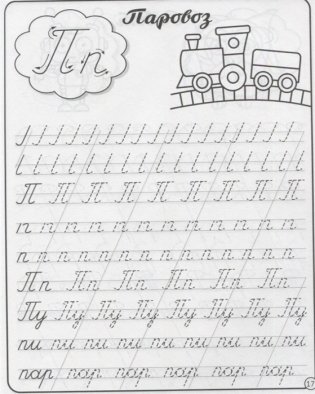 Паровоз
Пп
П П П П П П П П П
п п п п п п п п п п п п
п п п п п п п п п п п п
Пп Пп Пп Пп Пп Пп
Пу Пу Пу Пу Пу Пу Пу Пу
пи пи пи пи пи пи пи пи пи
пар пар пар пар пар пар
17